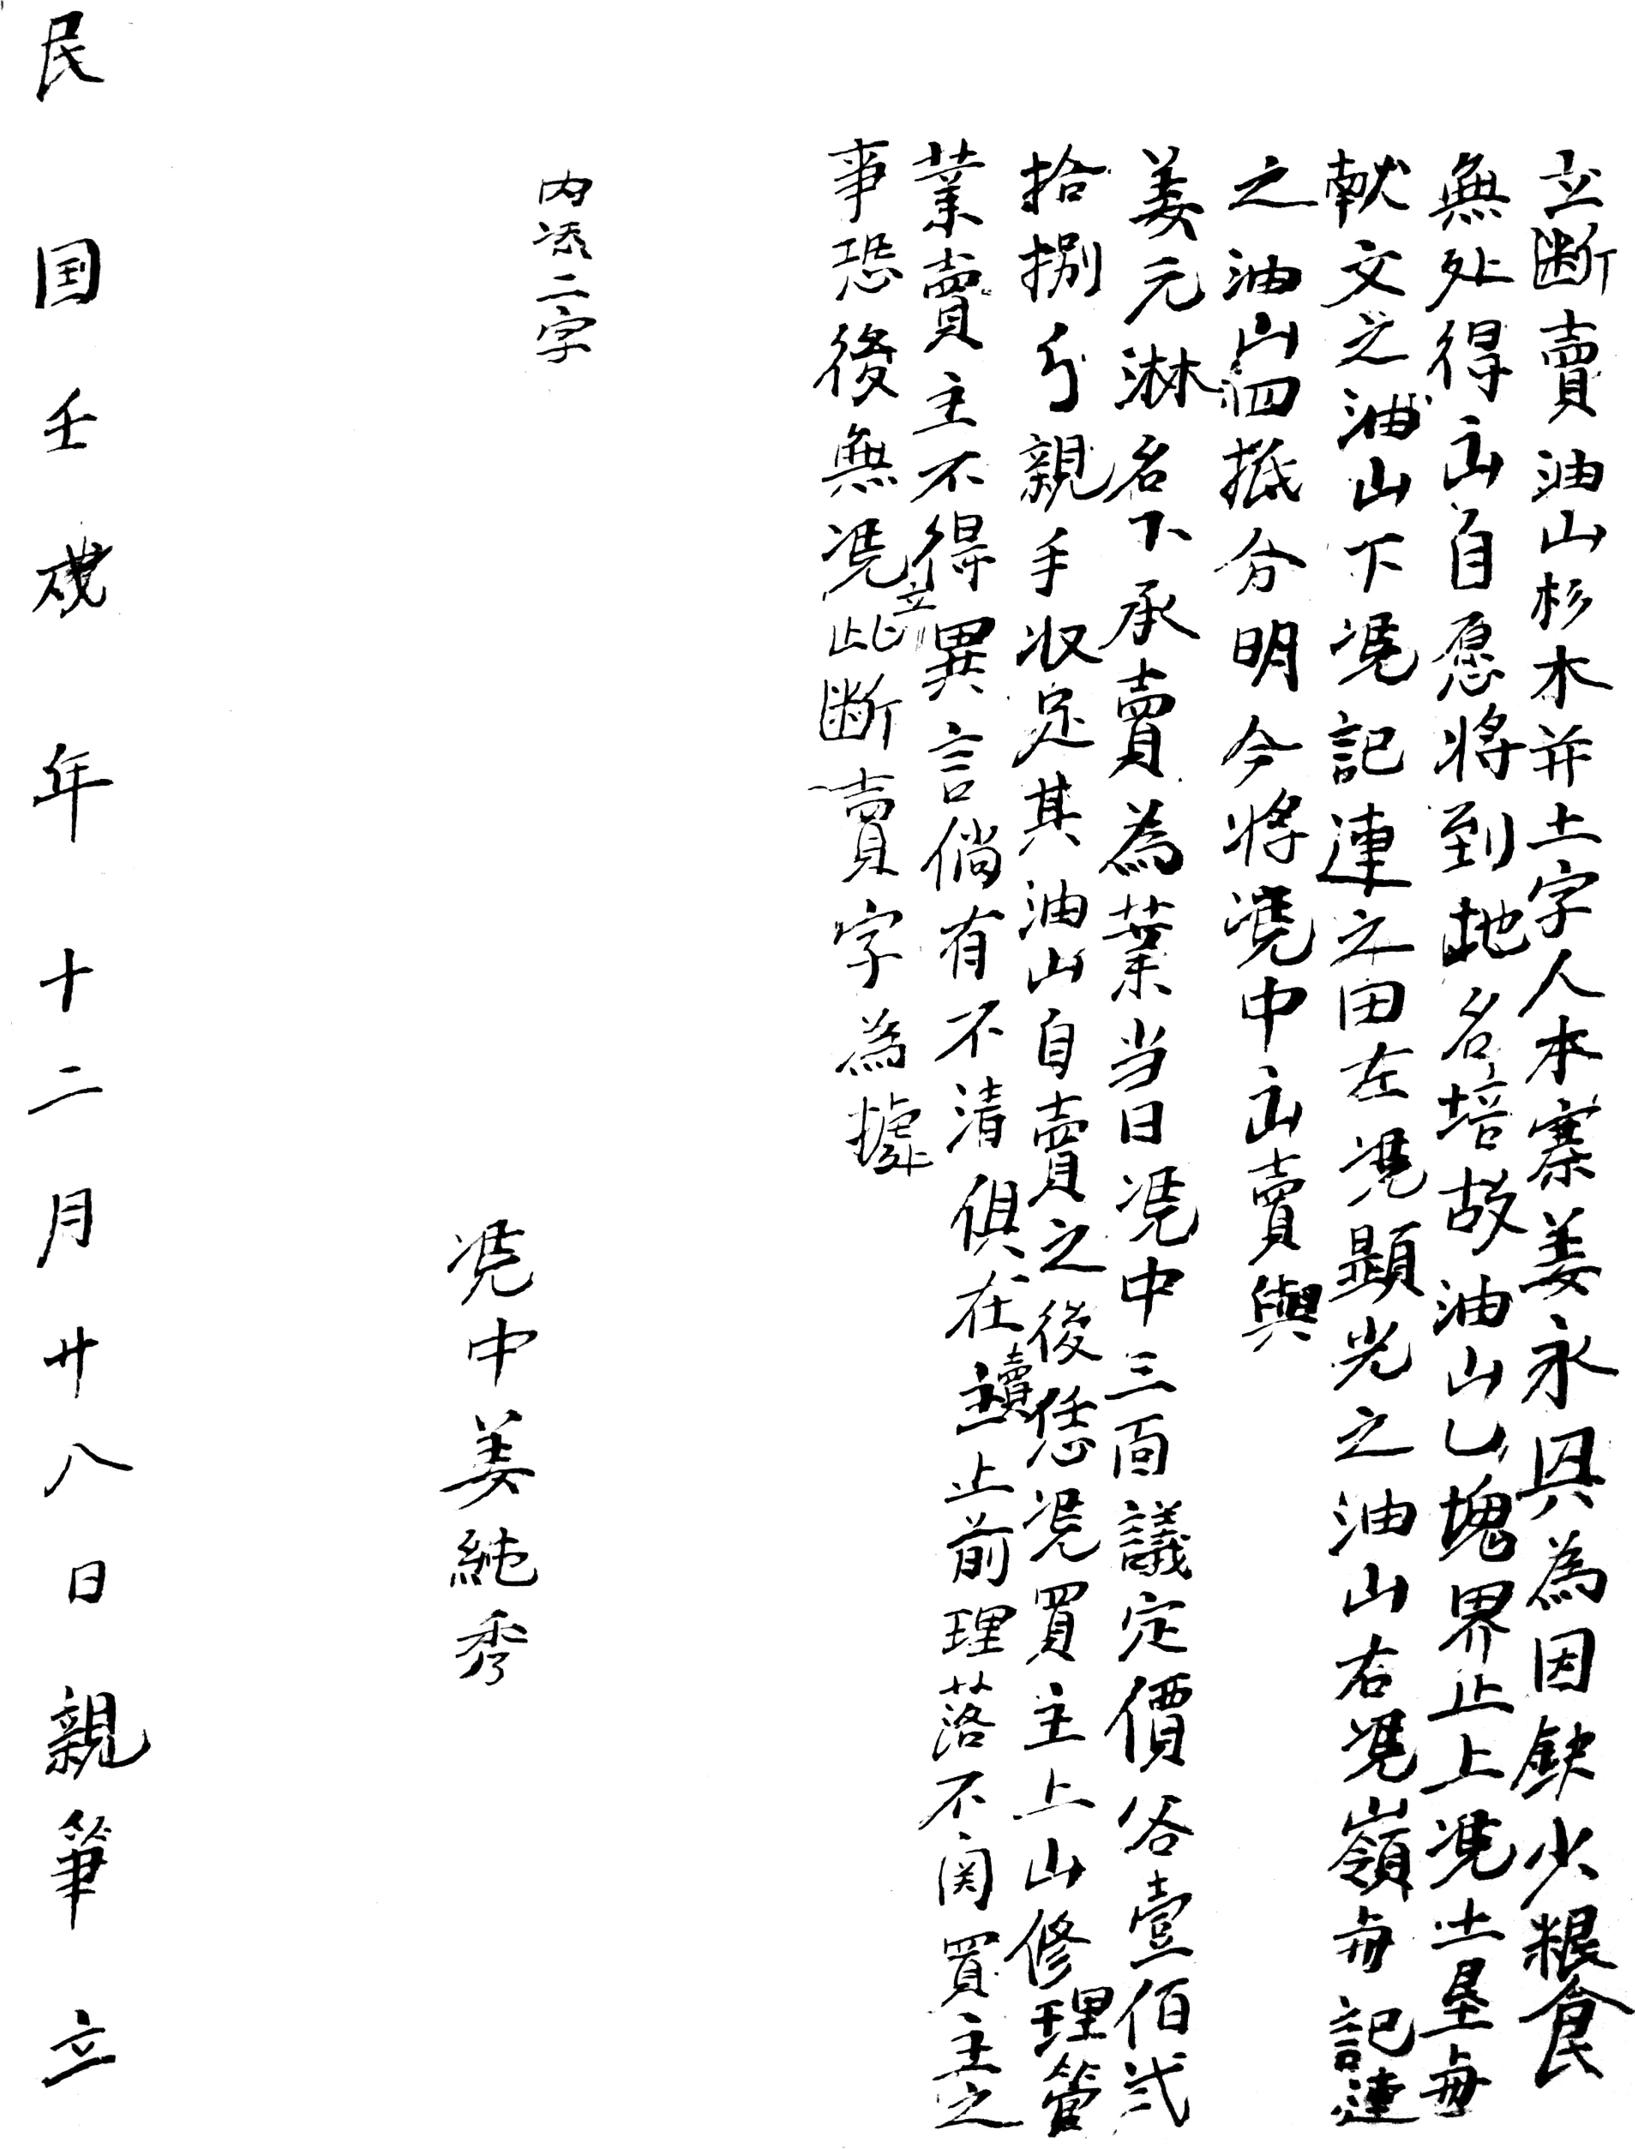 立断賣油山杉木并土字人本寨姜永興為因缺少粮食
無处得出自愿将到地名培故油山乙塊界止上凴土垦毎
献文之油山下凴記連之田左凴顕光之油山右凴嶺毎記連
之油山四抵分明今将凴中出賣與
姜元淋名下承賣為業当日凴中三面議定價谷壹佰弍
拾捌斤親手收足其油山自賣之後恁凴買主上山修理管
業賣主不得異言倘有不清俱在賣主止前理落不関買主之
事恐後無凴立此断賣字為據
内添二字
凴中姜純秀
民国壬戌年十二月廿八日親筆立